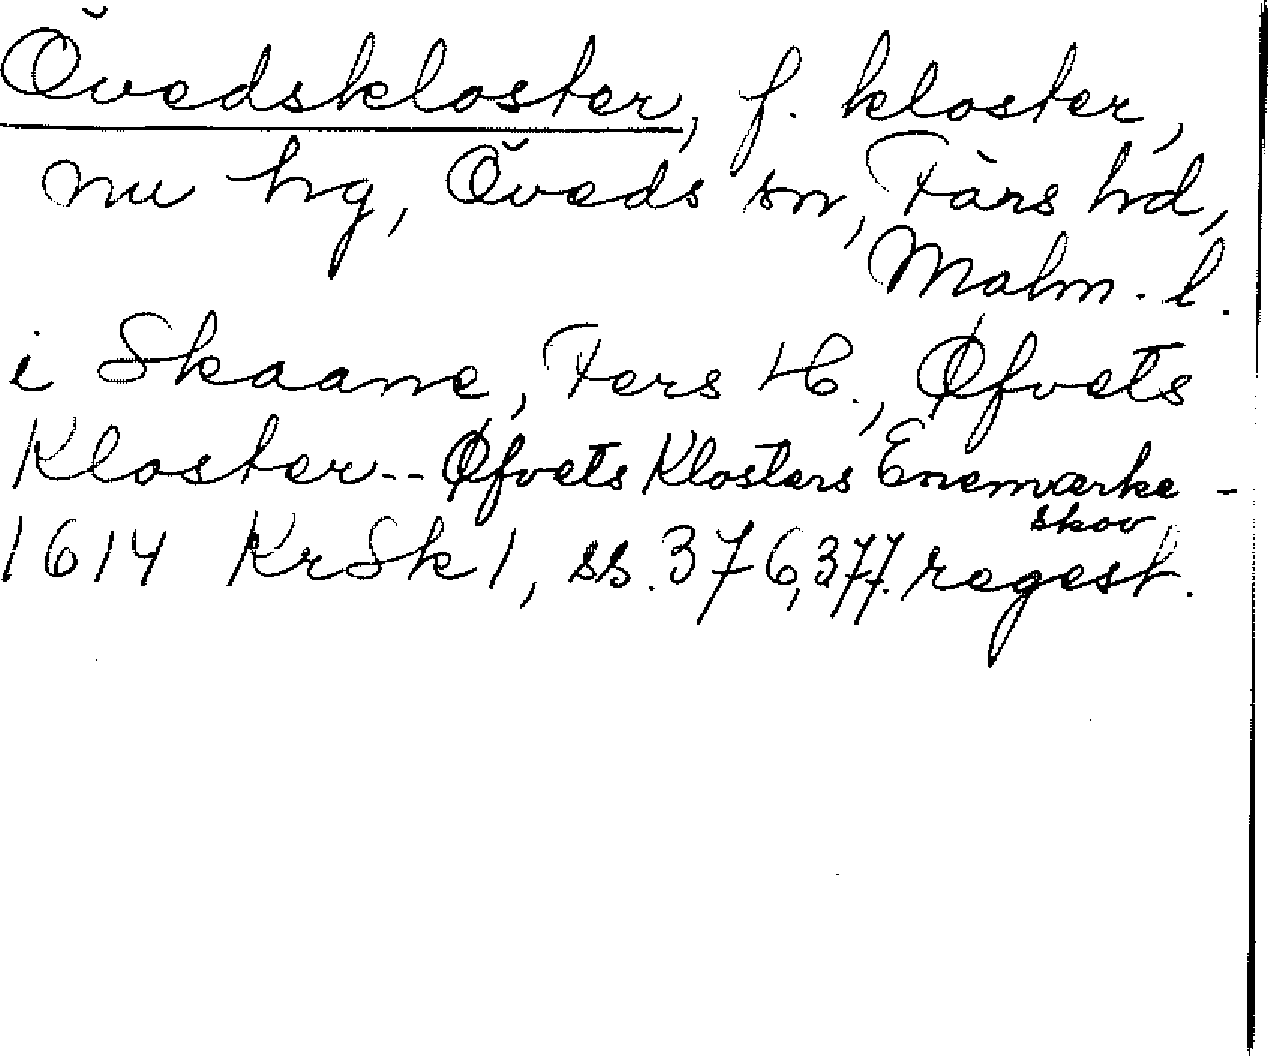 Övedskloster, f. kloster,
nu hg, Öveds sn, Färs hd,
Malm. l.
i Skaane, Fers H., Øfvets
Kloster-- Øfvets Klosters Enemærke -
skov
1614 KrSk 1, ss. 376, 377. regest.